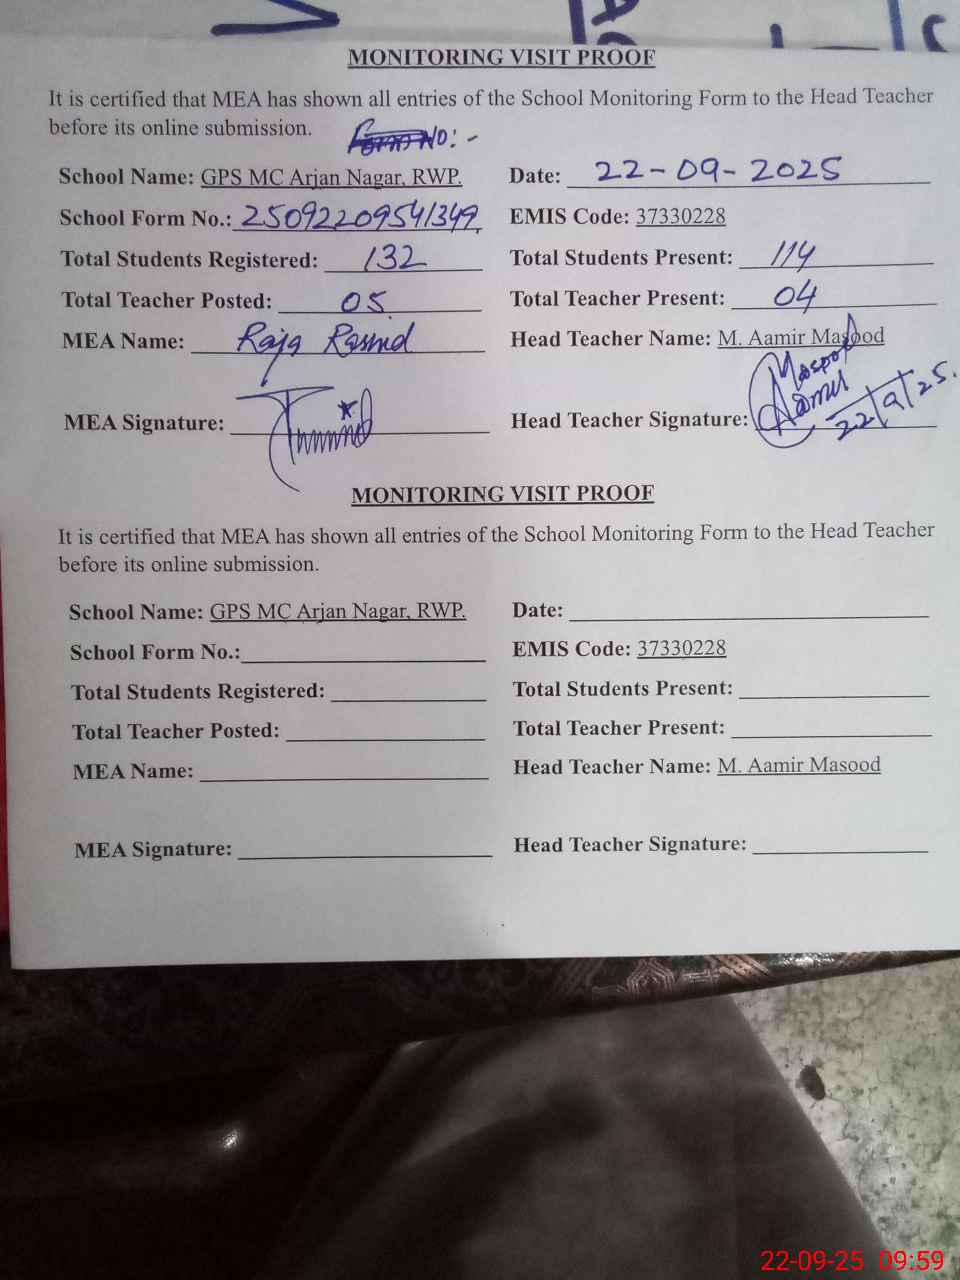 MONITORING VISIT PROOF
It is certified that MEA has shown all entries of the School Monitoring Form to the Head Teacher
before its online submission.
Form NO:-
School Name: GPS MC Arjan Nagar, RWP. Date: 22-09-2025
School Form No.: 25092209541349 EMIS Code: 37330228
Total Students Registered: 132 Total Students Present: 114
Total Teacher Posted: 05 Total Teacher Present: 04
MEA Name: Raja Head Teacher Name: M. Aamir Masood
MEA Signature: Head Teacher Signature: Masood
Aamir
22/9/25.
MONITORING VISIT PROOF
It is certified that MEA has shown all entries of the School Monitoring Form to the Head Teacher
before its online submission.
School Name: GPS MC Arjan Nagar, RWP. Date:
School Form No.: EMIS Code: 37330228
Total Students Registered: Total Students Present:
Total Teacher Posted: Total Teacher Present:
MEA Name: Head Teacher Name: M. Aamir Masood
MEA Signature: Head Teacher Signature:
22-09-25 09:59